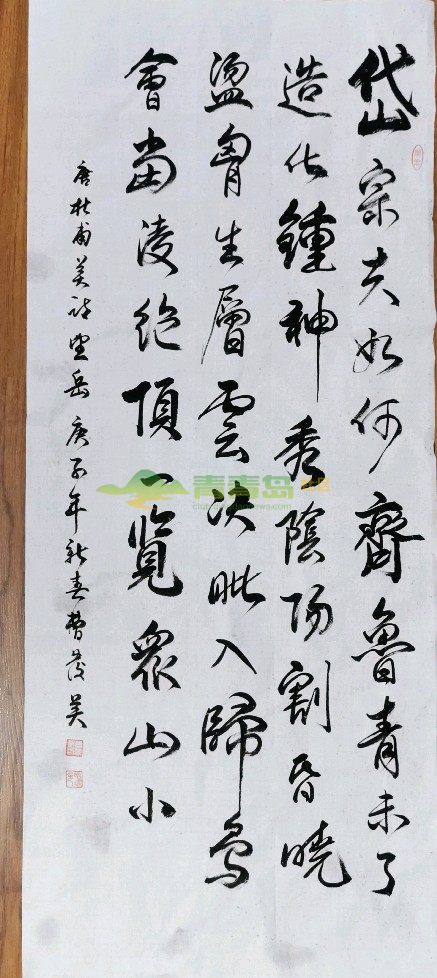 岱宗夫如何齊魯青未了
造化鍾神秀陰陽割昏曉
盪胷生層雲決眦入歸鳥
會當凌絕頂一覽衆山小
唐杜甫美詩望岳庚子年新春曹美
青青岛社区